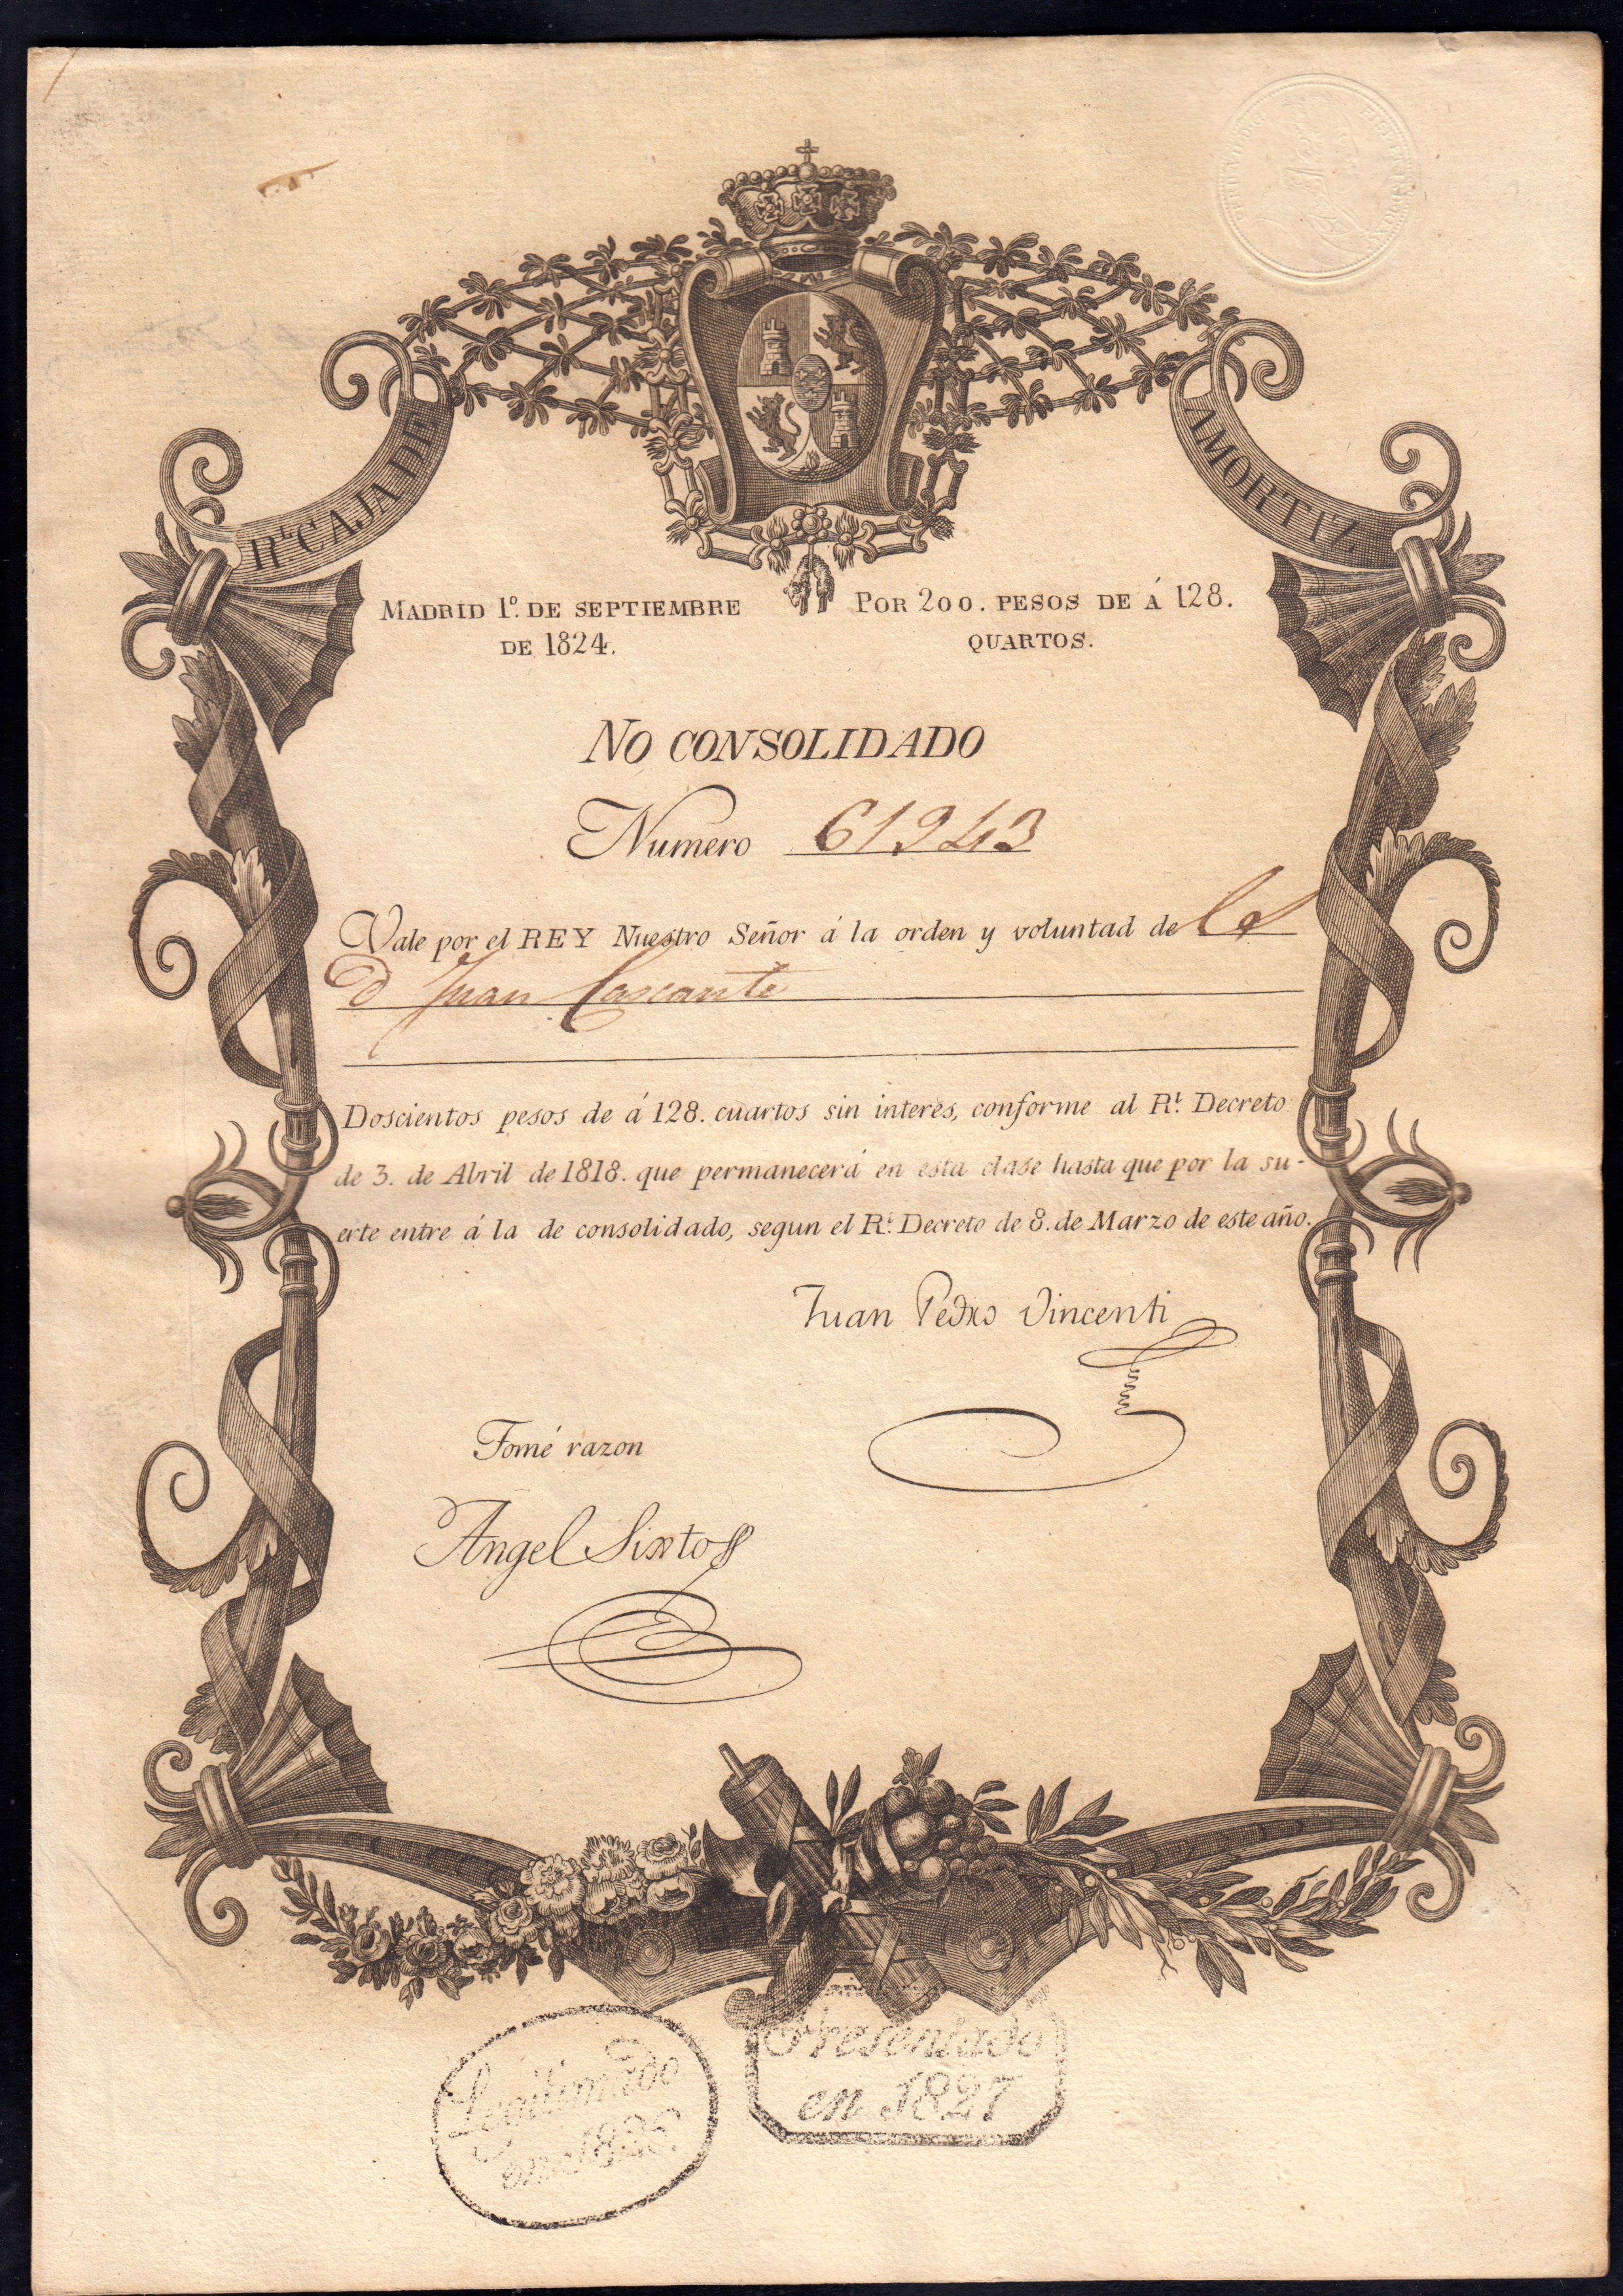 Rl. CAJA DE
AMORTIZ
MADRID 1º. DE SEPTIEMBRE
DE 1824.
POR 200. PESOS DE Á 128.
QUARTOS.
NO CONSOLIDADO
Numero 61943
Vale por el REY Nuestro Señor á la orden y voluntad de
D Juan Cascante
Doscientos pesos de á 128. cuartos sin interés, conforme al Rl. Decreto
de 3. de Abril de 1818. que permanecerá en esta clase hasta que por la su-
erte entre á la de consolidado, segun el Rl. Decreto de 8. de Marzo de este año.
Juan Pedro Vincenti
Tomé razon
Angel Sixto
Legitimado
en 182
Presentado
en 1827